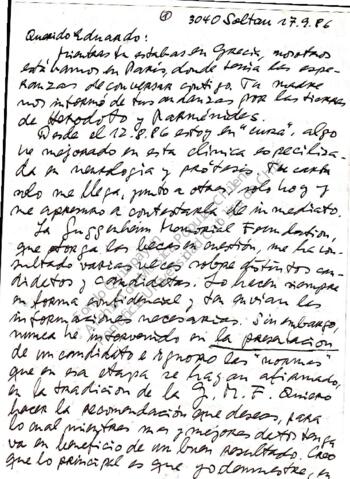 ①
3040 Soltau 17.9.86
Querido Eduardo:
Mientras tu estabas en Grecia, nosotros
estábamos en París, donde tenía las espe-
ranzas de conversar contigo. Tu madre
nos informó de tus andanzas por las tierras
de Heródoto y Parménides.
Desde el 12.8.86 estoy en "cura", algo
he mejorado en esta clínica especializa-
da en neurología y prótesis. Tu carta
solo me llega, junto a otras, solo hoy y
me apresuro a contestarla de inmediato.
La Guggenheim Memorial Foundation,
que otorga las becas en cuestión, me ha con-
sultado varias veces sobre distintos can-
didatos y candidatas. Lo hacen siempre
en forma confidencial y envían las
informaciones necesarias. Sin embargo,
nunca he intervenido en la presentación
de un candidato e ignoro las "normas"
que en esa etapa se hayan afirmado,
en la tradición de la G. M. F. Quiero
hacer la recomendación que deseas, para
lo cual mientras mas y mejores datos tenga
va en beneficio de un buen resultado. Creo
que lo principal es que yo demuestre, en